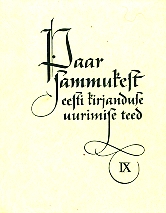 Paar
sammukest
eesti kirjanduse
uurimise teed
IX